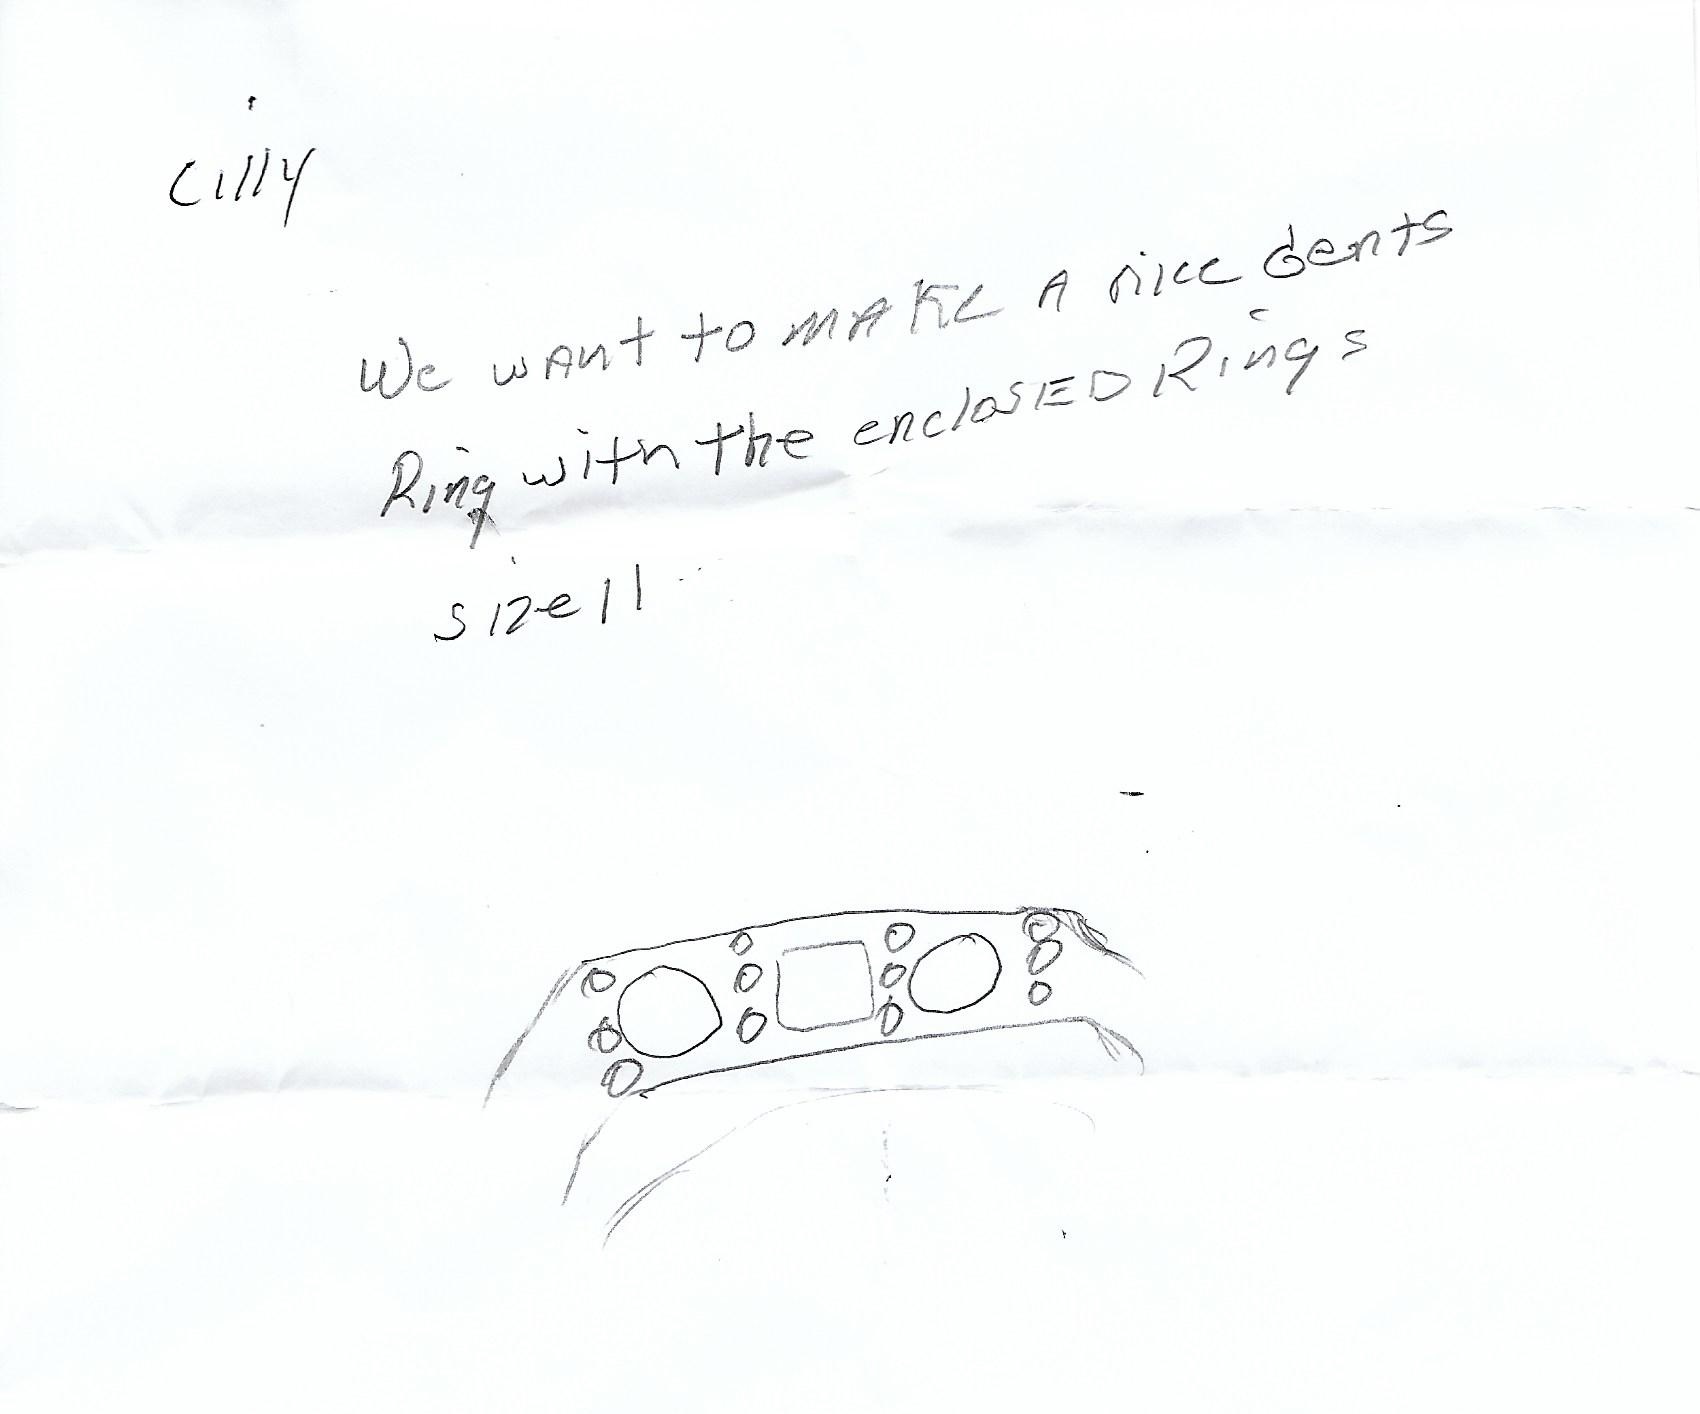 Cilly
We want to make a nice Gents
Ring with the encloSED Rings
size 11